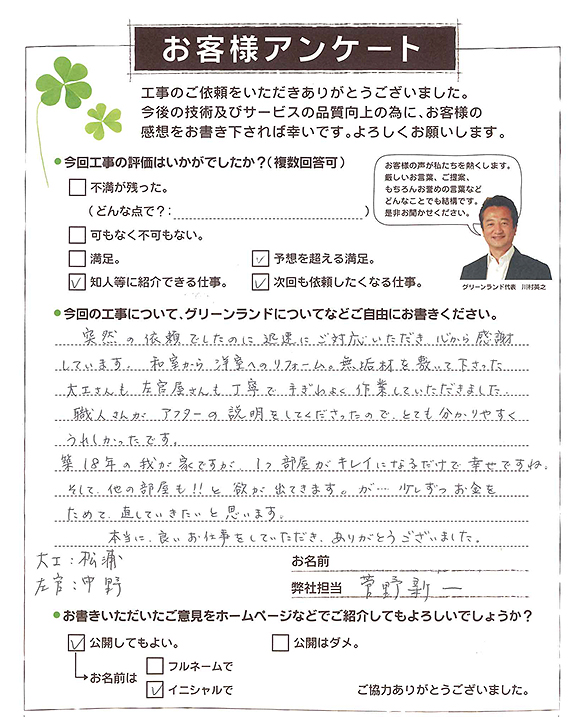 お客様アンケート
工事のご依頼をいただきありがとうございました。
今後の技術及びサービスの品質向上の為に、お客様の
感想をお書き下されば幸いです。よろしくお願いします。
●今回工事の評価はいかがでしたか？(複数回答可)
不満が残った。
(どんな点で？:)
可もなく不可もない。
満足。
予想を超える満足。
知人等に紹介できる仕事。
次回も依頼したくなる仕事。
お客様の声が私たちを熱くします。
厳しいお言葉、ご提案、
もちろんお誉めの言葉など
どんなことでも結構です。
是非お聞かせください。
グリーンランド代表 川村英之
●今回の工事について、グリーンランドについてなどご自由にお書きください。
突然の依頼でしたのに迅速にご対応いただき心から感謝
しています。和室から洋室へのリフォーム。無垢材を敷いて下さった
大工さんも左官屋さんも丁寧で手ぎわよく作業していただきました。
職人さんがアフターの説明をしてくださったので、とても分かりやすく
うれしかったです。
築18年の我が家ですが、1つ部屋がキレイになるだけで幸せですね。
そして、他の部屋も!!と欲が出てきます。が…少しずつお金を
ためて、直していきたいと思います。
本当に、良いお仕事をしていただき、ありがとうございました。
大工:松浦
左官:中野
お名前
弊社担当 菅野新一
●お書きいただいたご意見をホームページなどでご紹介してもよろしいでしょうか？
公開してもよい。
公開はダメ。
お名前は
フルネームで
イニシャルで
ご協力ありがとうございました。